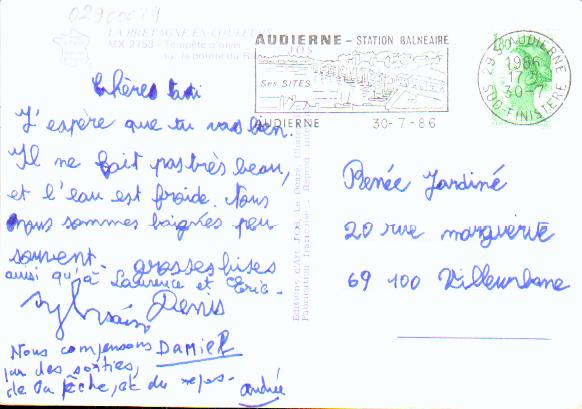 02900014
LA BRETAGNE EN COULEURS
MX 2753 - Tempête d'hiver
sur la pointe du Raz
JOS
AUDIERNE - STATION BALNÉAIRE
SES SITES
AUDIERNE 30-7-86
29 S AUDIERNE
1986
17 H
30-7
SUD-FINISTERE
Chères tati
J'espère que tu vas bien.
Il ne fait pas très beau,
et l'eau est froide. Nous
nous sommes baignées peu
souvent. grosses bises
ainsi qu'à Laurence et Eric.
Sylvain Denis
DAMIER
Nous compensons
par des sorties,
de la pêche, et du repos - andrée
Editions d'Art JOS Le Doaré, Chat
Fabrication française - Reprod. inter
Renée Jardiné
20 rue marguerite
69 100 Villeurbane